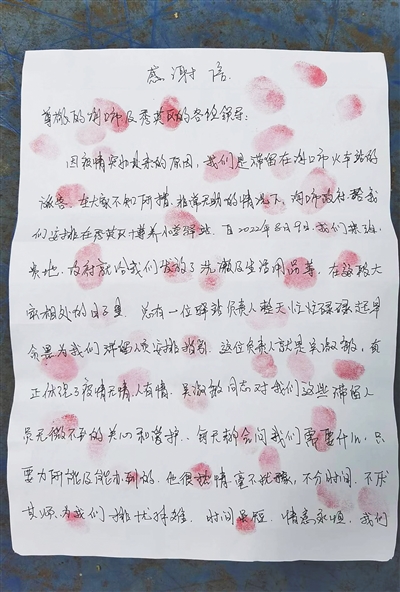 感谢信
尊敬的海口市及秀英区的各位领导:
因疫情突如其来的原因,我们是滞留在海口市火车站的
旅客。在大家不知所措,非常无助的情况下,海口市政府帮我
们安排在秀英区 驿站。自2022年8月9日,我们来到
贵地,政府就给我们发放了洗漱及生活用品等,在这段大
家相处的日子里,总有一位驿站负责人整天忙忙碌碌起早
贪黑为我们滞留人员安排 。这位负责人就是吴淑敏,真
正体现了疫情无情人有情,吴淑敏同志对我们这些滞留人
员无微不至的关心和爱护..每天都会问我们需要什么,只
要力所能及能办到的,他很热情,毫不犹豫,不分时间,不厌
其烦,为我们排忧解难。时间虽短,情意永恒,我们